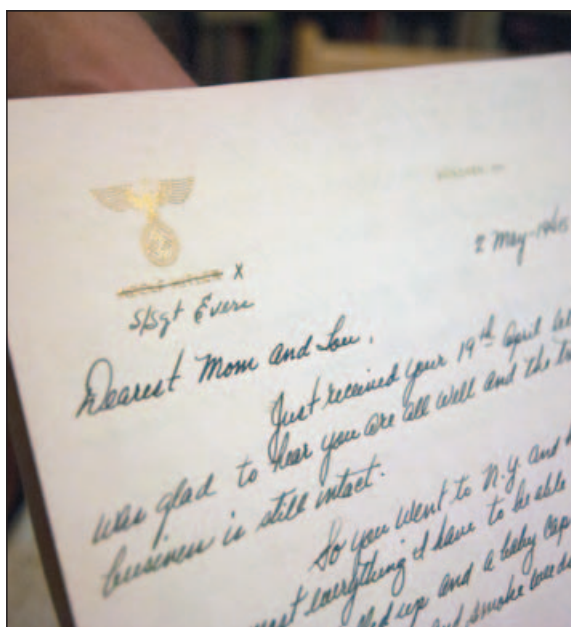 2 May-1945
X
S/Sgt Evers
Dearest Mom and Lou,
Just received your 19th April
was glad to hear you are all well and the
business is still intact.
So you went to N.Y. and
most everything I have to be able
up and a baby
and smoke weeds